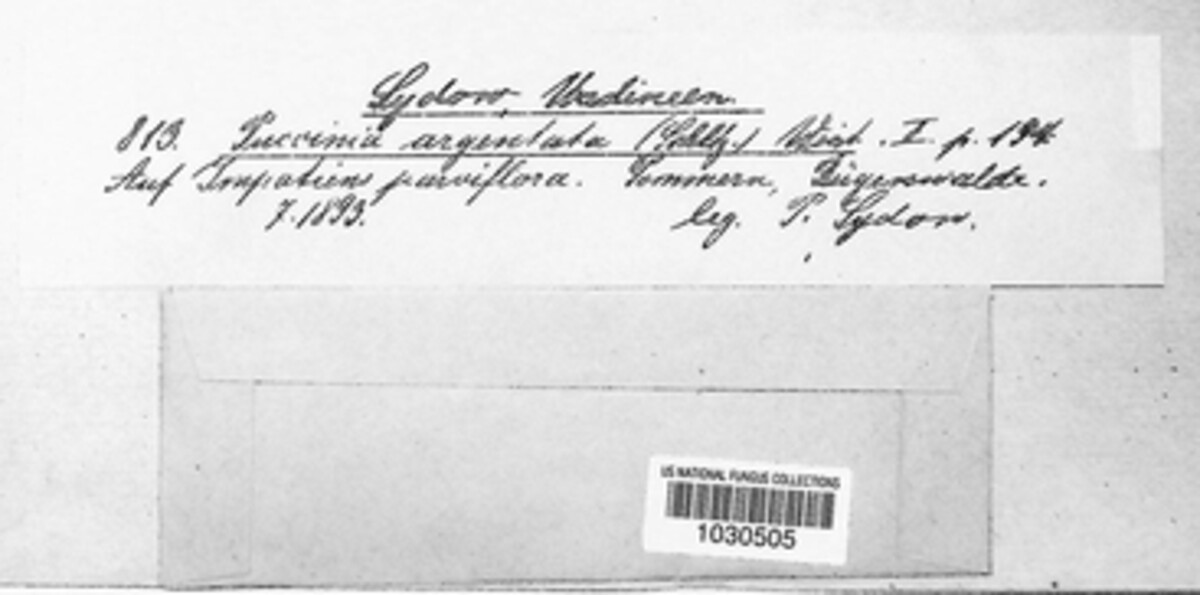 Sydow, Uredineen.
813. Puccinia argentata (Schltz.) Wint. I. p. 194.
Auf Impatiens parviflora. Pommern, Rügenwalde.
7. 1893. leg. P. Sydow.
US NATIONAL FUNGUS COLLECTIONS
1030505